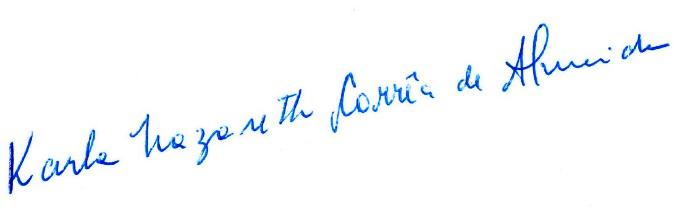 Karla Nazareth Corrêa de Almeida